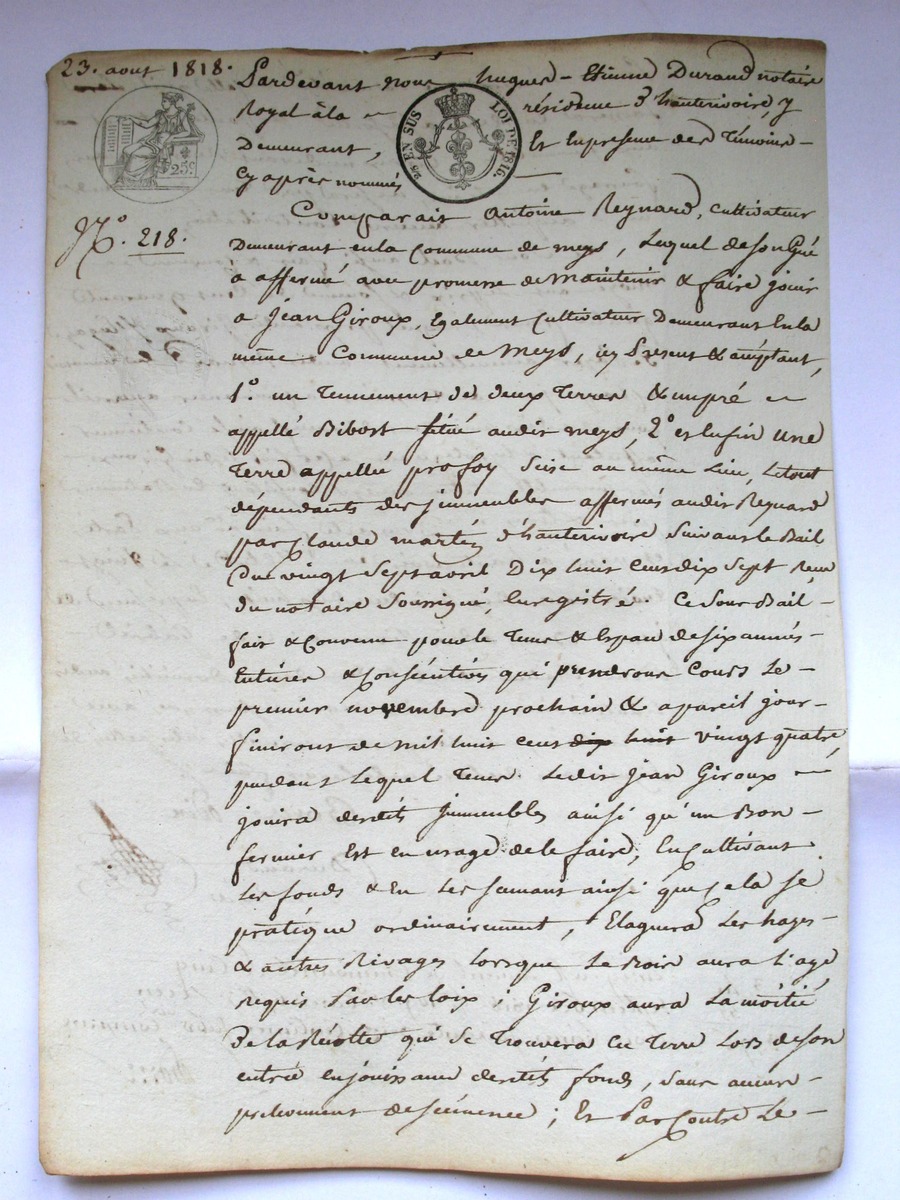 23. aout 1818.
Pardevant nous hugues-Etienne Durand notaire
Royal à la résidence d'hauterivoire, y
Demeurant, Et En presence des Témoins
Cy après nommés
25c
2/5 EN SUS LOI DE 1816.
No. 218.
Comparait Antoine Reynard, cultivateur
Demeurant en la Commune de meys, Lequel de son Gré
à affermé avec promesse de Maintenir & faire jouir
a Jean Giroux, Egalement Cultivateur Demeurant En la
même Commune de Meys, icy Présent & acceptant,
1o un Tennement de deux Terres & un pré
appellé Bibost situé audit meys, 2o et Enfin une
Terre appellée profoy Sise au même Lieu, Le tout
dépendants des immeubles affermés audit Reynard
par Claude martin d'hauterivoire Suivant le Bail
Du vingt Sept avril Dix huit Cent dix Sept Reçu
Du notaire Soussigné, Enregistré. Ce Sous Bail
fait & Convenu pour le Tems & Espace de six années
Entières & Consécutives qui prendrons Cours Le
premier novembre prochain & a pareil jour
finirons de mil huit cent dix huit vingt quatre,
pendant Lequel Tems Ledit Jean Giroux
jouira desdits immeubles ainsi qu'un Bon
fermier Est en usage de le faire, En Cultivant
Les fonds & En Les semant ainsi que cela se
pratique ordinairement, Elaguera Les hayes
& autres Rivages lorsque Le Bois aura l'age
Requis Par les loix, Giroux aura La moitié
De la Récolte qui se Trouvera En Terre Lors de son
entrée en jouissance desdits fonds, sans aucun
prélevement de semence ; Et Par Contre Le